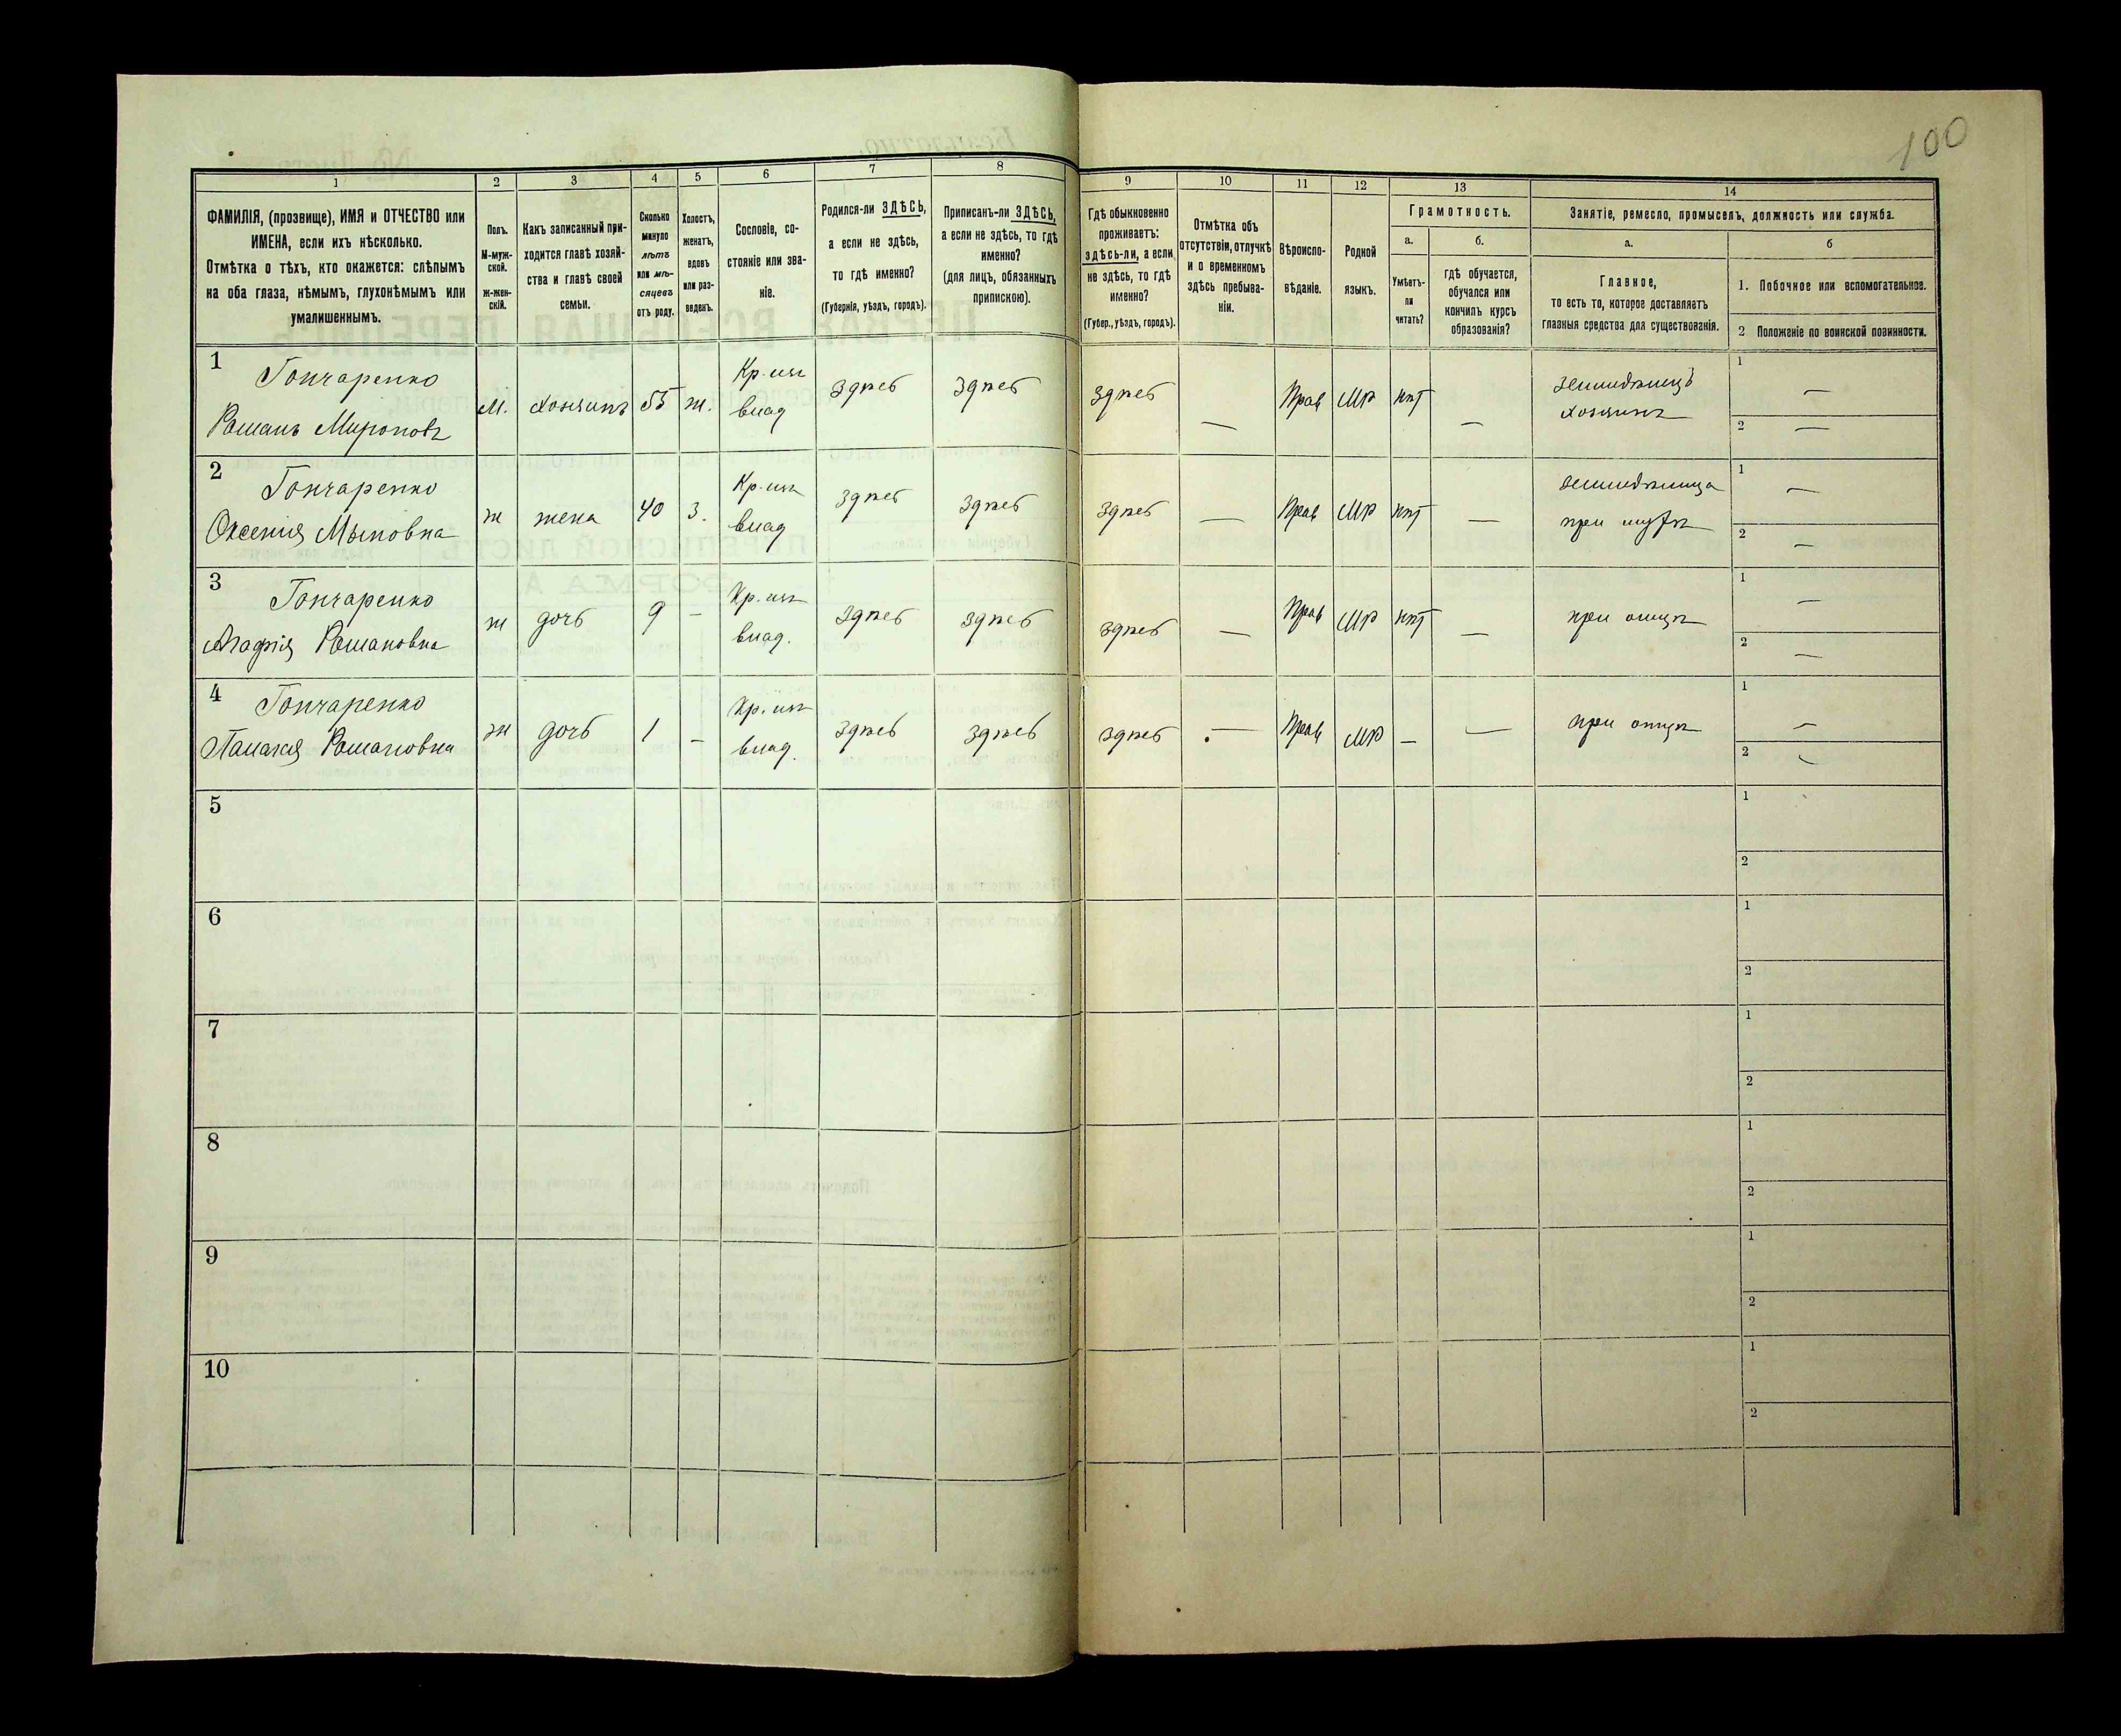 100
1
2
3
4
5
6
7
8
ФАМИЛІЯ, (прозвище), ИМЯ и ОТЧЕСТВО или
ИМЕНА, если ихъ нѣсколько.
Отмѣтка о тѣхъ, кто окажется: слѣпымъ
на оба глаза, нѣмымъ, глухонѣмымъ или
умалишеннымъ.
Полъ.
М-муж-
ской.
ж-жен-
скій.
Какъ записанный при-
ходится главѣ хозяй-
ства и главѣ своей
семьи.
Сколько
минуло
лѣтъ
или мѣ-
сяцевъ
отъ роду.
Холостъ,
женатъ,
вдовъ
или раз-
веденъ.
Сословіе, со-
стояніе или зва-
ніе.
Родился-ли ЗДѢСЬ,
а если не здѣсь,
то гдѣ именно?
(Губернія, уѣздъ, городъ).
Приписанъ-ли ЗДѢСЬ,
а если не здѣсь, то гдѣ
именно?
(для лицъ, обязанныхъ
припискою).
9
10
11
12
13
14
Гдѣ обыкновенно
проживаетъ:
здѣсь-ли, а если
не здѣсь, то гдѣ
именно?
(Губер., уѣздъ, городъ).
Отмѣтка объ
отсутствіи, отлучкѣ
и о временномъ
здѣсь пребыва-
ніи.
Вѣроиспо-
вѣданіе.
Родной
языкъ.
Грамотность.
а.
б.
Умѣетъ-
ли
читать?
гдѣ обучается,
обучался или
кончилъ курсъ
образованія?
Занятіе, ремесло, промыселъ, должность или служба.
а.
б
Главное,
то есть то, которое доставляетъ
главныя средства для существованія.
1. Побочное или вспомогательное.
2 Положеніе по воинской повинности.
1
Гончаренко
Романъ Мироновъ
м. хозяинъ 55 ж.
Кр. изъ
влад
здѣсь здѣсь здѣсь — Прав МР нѣт —
земледѣлецъ
хозяинъ
1 —
2 —
2
Гончаренко
Оксенія
ж жена 40 з.
Кр. изъ
влад
здѣсь здѣсь здѣсь — Прав МР нѣт —
земледѣлица
при мужѣ
1 —
2 —
3
Гончаренко
Агафія Романовна
ж дочь 9 —
Кр. изъ
влад.
здѣсь здѣсь здѣсь — Прав МР нѣт —
при отцѣ
1 —
2 —
4
Гончаренко
Палагея Романовна
ж дочь 1 —
Кр. изъ
влад.
здѣсь здѣсь здѣсь — Прав МР — —
при отцѣ
1 —
2 —
5
1
2
6
1
2
7
1
2
8
1
2
9
1
2
10
1
2